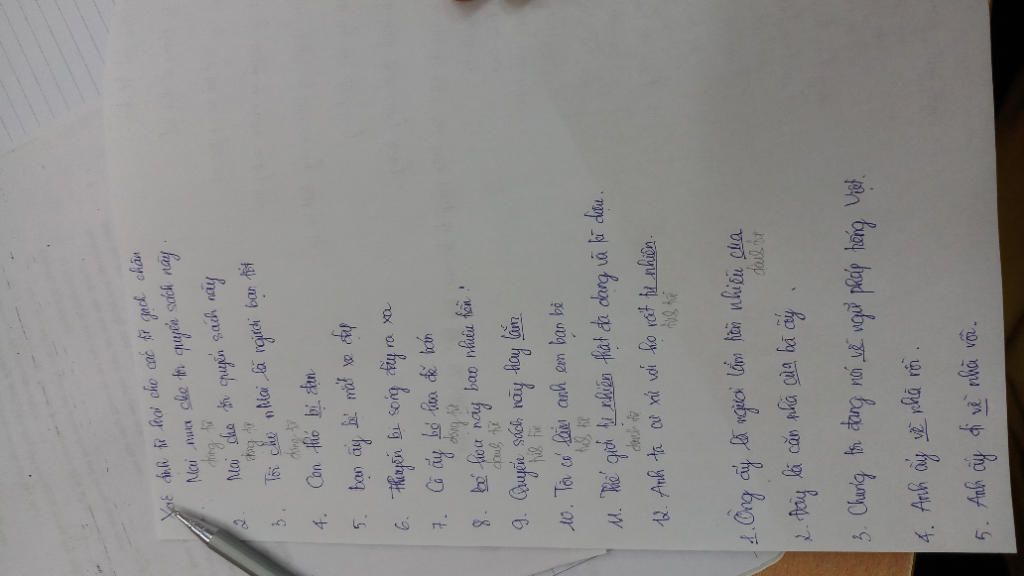 Xác định từ loại cho các từ gạch chân
Mai mua cho tôi quyển sách này.
động từ
2. Mai cho tôi quyển sách này
động từ
3. Tôi cho Mai là người bạn tốt
động từ
4. Con thỏ bị đạn
5. Bạn ấy bị mất xe đạp
6. Thuyền bị sóng đẩy ra xa
7. Cô ấy bó hoa để bán
động từ
8. Bó hoa này bao nhiêu tiền?
danh từ
9. Quyển sách này hay lắm
tính từ
10. Tôi có lắm anh em bạn bè
tính từ
11. Thế giới tự nhiên thật đa dạng và kì diệu.
danh từ
12. Anh ta cư xử với họ rất tự nhiên.
tính từ
1. Ông ấy là người lắm tiền nhiều của
danh từ
2. Đây là căn nhà của bà ấy.
3. Chúng tôi đang nói về ngữ pháp tiếng Việt.
4. Anh ấy về nhà rồi.
5. Anh ấy đi về nhà rồi.